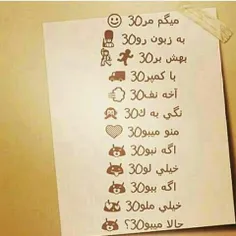 میگم مر30 ☺
به زبون رو30 💂
بهش بر30 🏃🚶
با کمپر30 🚚
آخه نف30 💨
نگی به ک30 🙊
منو میبو30 💗
اگه نبو30
خیلي لو30
اگه ببو30
خیلي ملو30
حالا میبو30؟